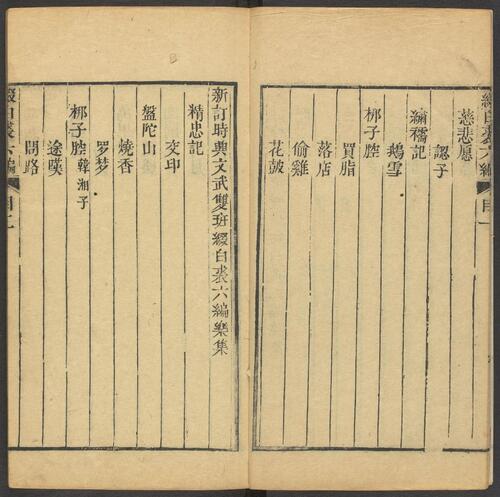 綴白裘六編 目一
慈悲愿
認子
繡襦記
鵝雪
梆子腔
買脂
落店
偷雞
花鼓
新訂時興文武雙班綴白裘六編樂集
精忠記
交印
盤陀山
燒香
羅夢
梆子腔 韓湘子
途嘆
問路
綴白裘六編 目二